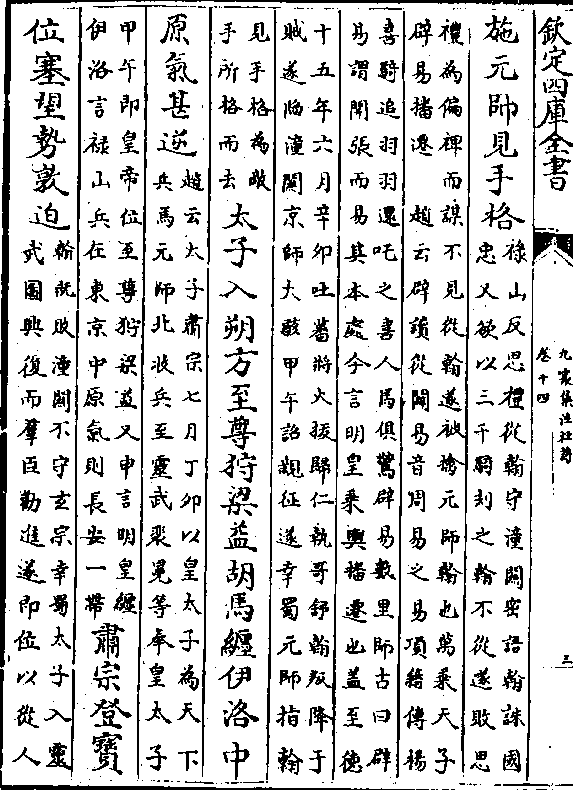 欽定四庫全書
九家集注杜詩
卷十四
三
施元帥見手格
祿山反思禮從翰守潼關密語翰誅國
忠又欲以三千騎刦之翰不從遂敗思
禮為偏裨而謀不見從翰遂被擒元師翰也萬乘天子
辟易播遷 趙云辟讀從闢易音周易之易項籍傳楊
喜騎追羽羽還叱之喜人馬俱驚辟易數里師古曰辟
易謂開張而易其本處今言明皇乘輿播遷也蓋至德
十五年六月辛卯吐蕃將火拔歸仁執哥舒翰叛降于
賊遂陷潼關京師大駭甲午詔親征遂幸蜀元師指翰
見手格為敵
手所格而去
太子入朔方至尊狩梁益胡馬纏伊洛中
原氣甚逆
趙云太子肅宗七月丁卯以皇太子為天下
兵馬元師北收兵至靈武裴冕等奉皇太子
甲午即皇帝位至尊狩梁益又申言明皇纏
伊洛言祿山兵在東京中原氣則長安一帶
肅宗登寶
位塞望勢敦迫
翰既敗潼關不守玄宗幸蜀太子入靈
武圖興復而羣臣勸進遂即位以從人